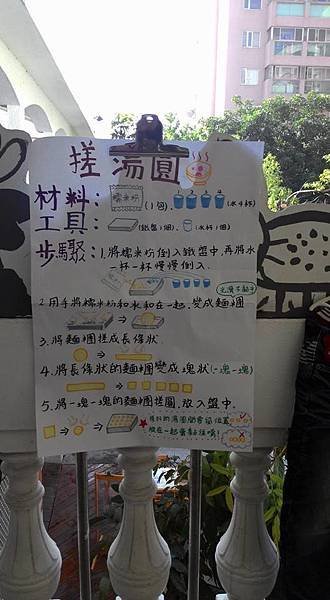 搓湯圓
材料：糯米粉(1包)、(水4杯)
工具：(鐵盤1個)、(水杯1個)
步驟：1.將糯米粉倒入鐵盤中,再將水
一杯一杯慢慢倒入.
2.用手將糯米粉和水和在一起,變成麵糰
3.將麵糰搓成長條狀.
4.將長條狀的麵糰變成塊狀(一塊一塊)
5.將一塊一塊的麵糰搓圓,放入盤中.
放在一起會黏住喔!